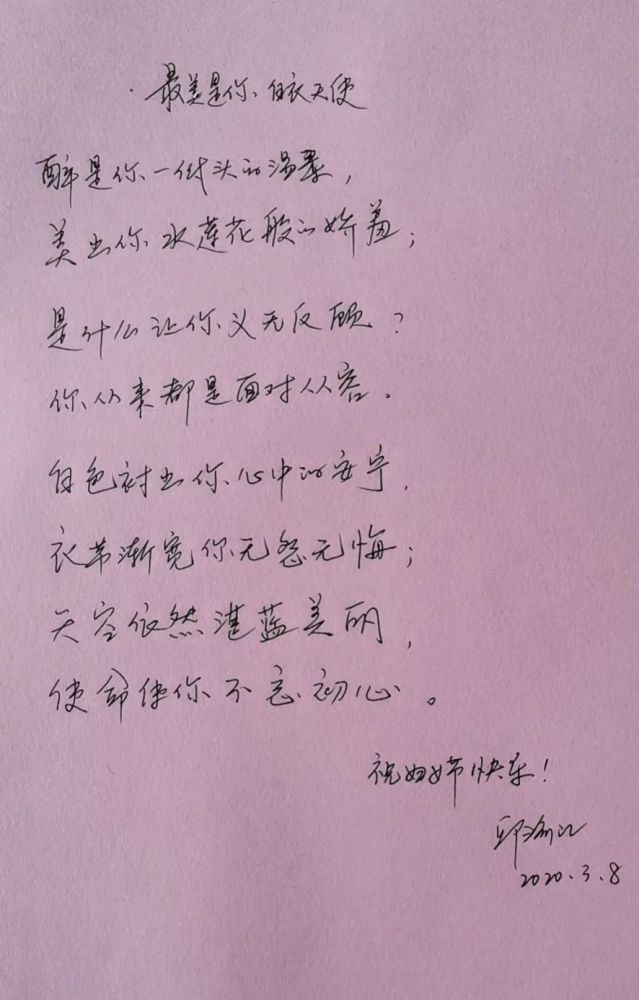 最美是你、白衣天使
醉是你一低头的温柔，
美出你水莲花般的娇羞；
是什么让你义无反顾？
你从来都是面对从容。
白色衬出你心中的安宁，
衣带渐宽你无怨无悔；
天空依然湛蓝美丽，
使命使你不忘初心。
祝妇女节快乐！
邱
2020.3.8